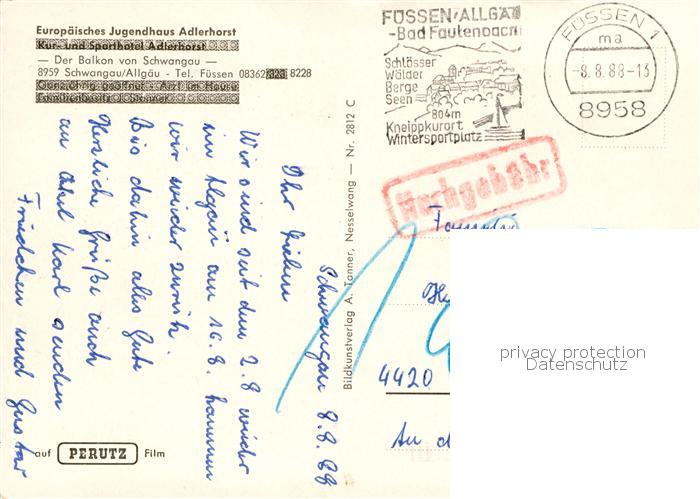 Europäisches Jugendhaus Adlerhorst
Kur- und Sporthotel Adlerhorst
— Der Balkon von Schwangau —
8959 Schwangau/Allgäu - Tel. Füssen 08362 8228
Ganzjährig geöffnet - Arzt im Hause
Schwangau 8.8.88
Ihr Lieben
Wir sind seit dem 2.8 wieder
im Algäu am 16.8. kommen
wir wieder zurück.
Bis dahin alles Gute
Herzliche Grüße auch
an Onkel Karl senden
Friedchen und Gustav
auf PERUTZ Film
Bildkunstverlag A. Tanner, Nesselwang — Nr. 2812 C
FÜSSEN/ALLGÄU
-Bad Faulenbach
Schlösser
Wälder
Berge
Seen
804m
Kneippkurort
Wintersportplatz
FÜSSEN 1
ma
-8.8.88-13
8958
Nachgebühr
4420
An d
privacy protection
Datenschutz